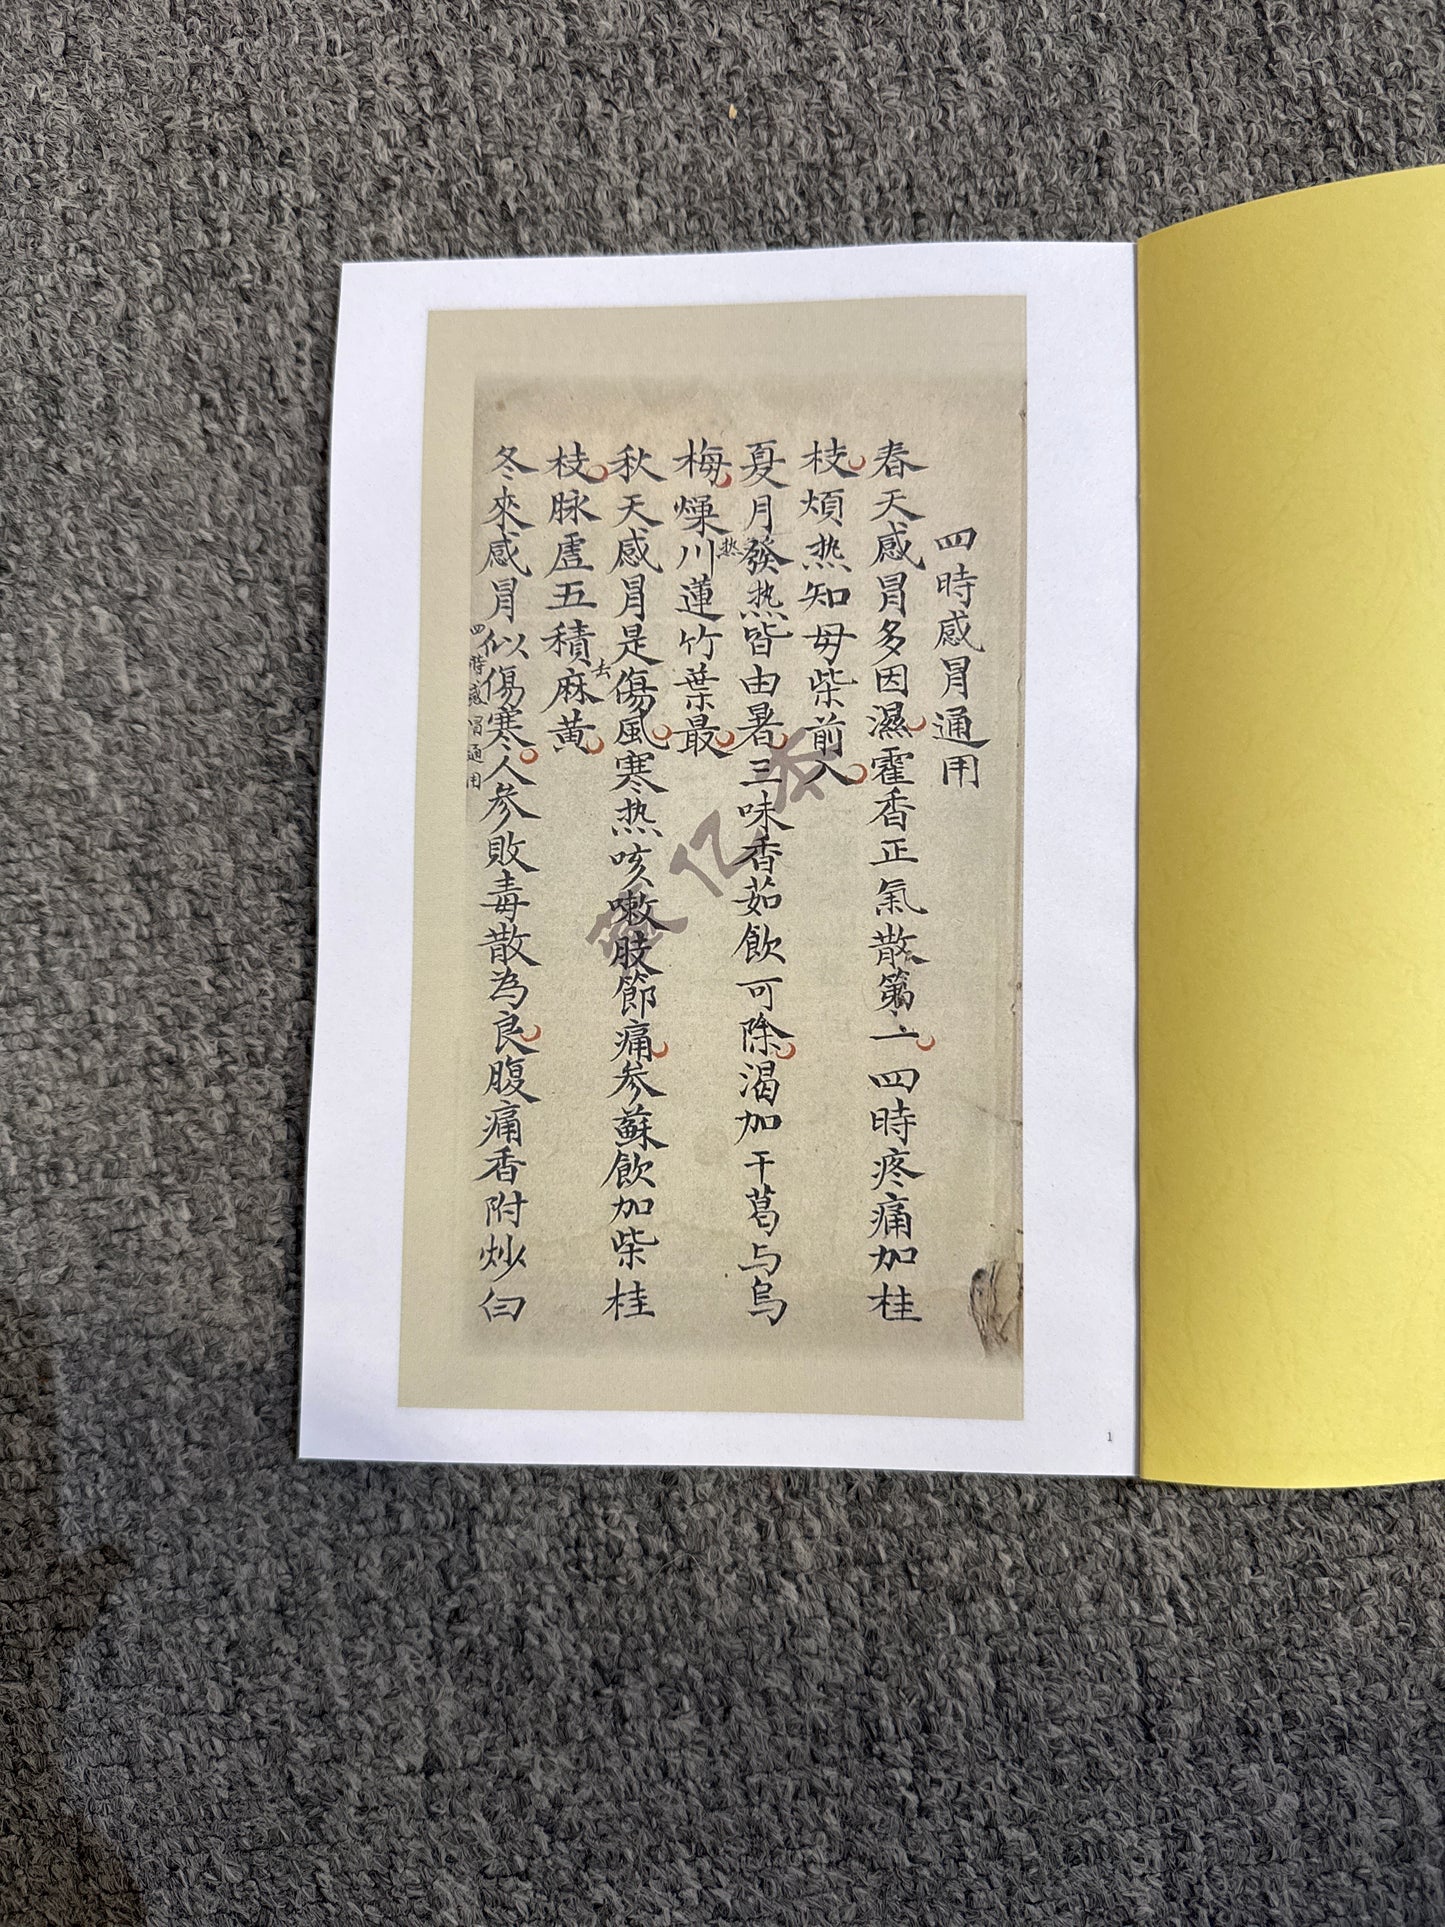 四時感冒通用
春天感冒多因濕霍香正氣散第一四時疼痛加桂
枝煩热知毋柴前入
夏月發热皆由暑三味香茹飲可除渴加干葛与烏
梅燥热川蓮竹葉最
秋天感冒是傷風寒热咳嗽肢節痛参蘇飲加柴桂
枝脉虛五積去麻黄
冬來感冒似傷寒人参敗毒散為良腹痛香附炒白
四時感冒通用
1